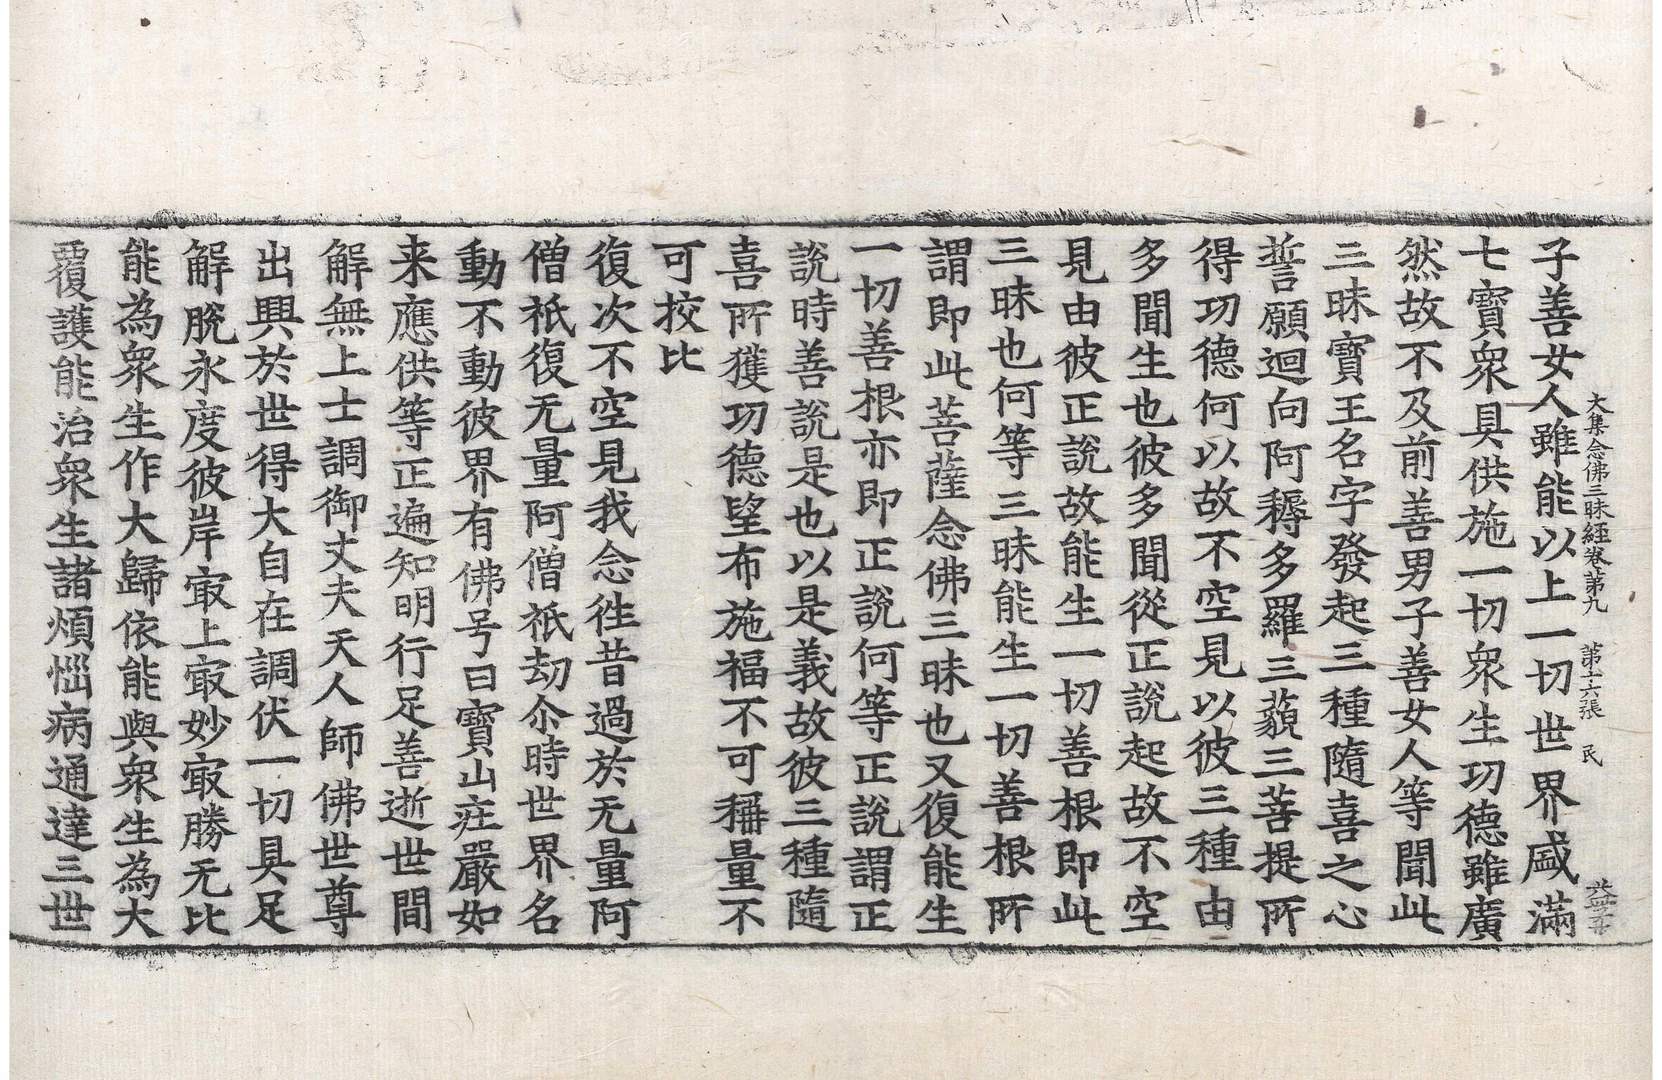 大集念佛三昧経卷第九　第十六張　民
子善女人雖能以上一切世界盛滿
七寶衆具供施一切衆生功德雖廣
然故不及前善男子善女人等聞此
三昧寶王名字發起三種隨喜之心
誓願迴向阿耨多羅三藐三菩提所
得功德何以故不空見以彼三種由
多聞生也彼多聞從正說起故不空
見由彼正說故能生一切善根即此
三昧也何等三昧能生一切善根所
謂即此菩薩念佛三昧也又復能生
一切善根亦即正說何等正說謂正
說時善說是也以是義故彼三種隨
喜所獲功德望布施福不可稱量不
可挍比
復次不空見我念徃昔過於无量阿
僧祇復无量阿僧祇劫尒時世界名
動不動彼界有佛号曰寶山疘嚴如
来應供等正遍知明行足善逝世間
解無上士調御丈夫天人師佛世尊
出興於世得大自在調伏一切具足
解脫永度彼岸㝡上㝡妙㝡勝无比
能為衆生作大歸依能與衆生為大
覆護能治衆生諸煩惱病通達三世